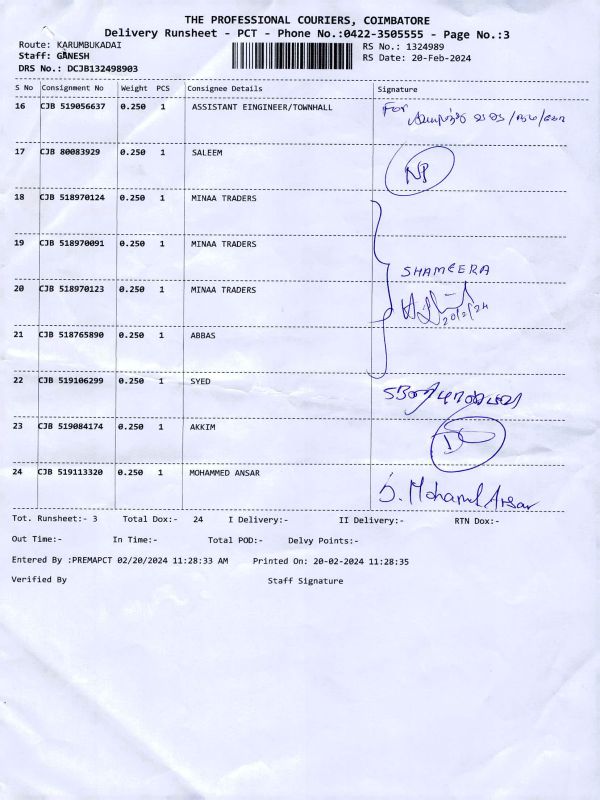 THE PROFESSIONAL COURIERS, COIMBATORE
Delivery Runsheet - PCT - Phone No.:0422-3505555 - Page No.:3
Route: KARUMBUKADAI RS No.: 1324989
Staff: GANESH RS Date: 20-Feb-2024
DRS No.: DCJB132498903
S No Consignment No Weight PCS Consignee Details Signature
16 CJB 519056637 0.250 1 ASSISTANT EINGINEER/TOWNHALL For
17 CJB 80083929 0.250 1 SALEEM NP
18 CJB 518970124 0.250 1 MINAA TRADERS
19 CJB 518970091 0.250 1 MINAA TRADERS
SHAMEERA
20 CJB 518970123 0.250 1 MINAA TRADERS
20/2/24
21 CJB 518765890 0.250 1 ABBAS
22 CJB 519106299 0.250 1 SYED
23 CJB 519084174 0.250 1 AKKIM DC
24 CJB 519113320 0.250 1 MOHAMMED ANSAR
S. Mohamed Ansar
Tot. Runsheet:- 3 Total Dox:- 24 I Delivery:- II Delivery:- RTN Dox:-
Out Time:- In Time:- Total POD:- Delvy Points:-
Entered By :PREMAPCT 02/20/2024 11:28:33 AM Printed On: 20-02-2024 11:28:35
Verified By Staff Signature